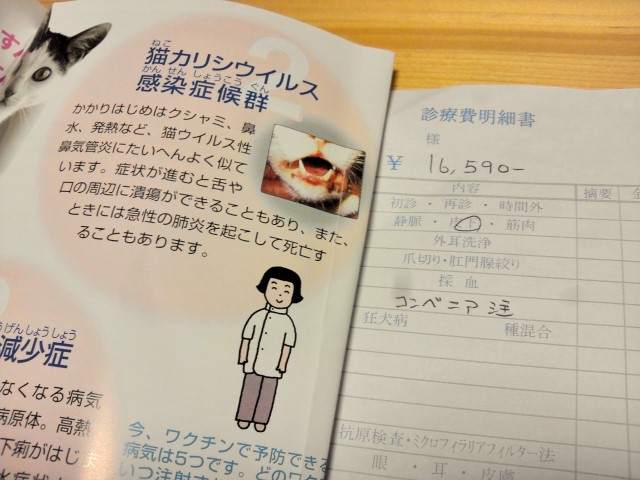 すん
ン
2
ねこ
猫カリシウイルス
かんせんしょうこうぐん
感染症候群
かかりはじめはクシャミ、鼻
水、発熱など、猫ウイルス性
鼻気管炎にたいへんよく似て
います。症状が進むと舌や
口の周辺に潰瘍ができることもあり、また、
ときには急性の肺炎を起こして死亡す
ることもあります。
うげんしょうしょう
減少症
なくなる病気
病原体。高熱
下痢がはじま
水症状
今、ワクチンで予防できる
病気は5つです。どのワク
いつ注射す
診療費明細書
様
¥ 16,590-
内容 摘要 金
初診・再診・時間外
静脈・皮下・筋肉
外耳洗浄
爪切り・肛門腺絞り
採血
コンベニア 注
狂犬病 種混合
抗原検査・ミクロフィラリアフィルター法
眼・耳・皮膚